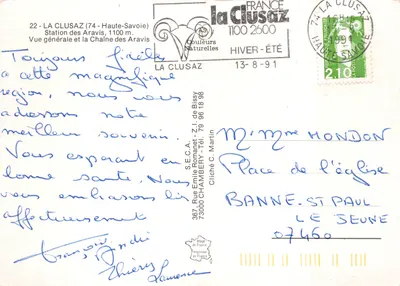 22 - LA CLUSAZ (74 - Haute-Savoie)
Station des Aravis, 1100 m.
Vue générale et la Chaîne des Aravis
Toujours fidèles
a cette magnifique
region, nous vous
adressons notre
meilleur souvenir.
Vous esperant en
bonne santé. Nous
vous embrassons bien
affectueusement
Françoise
André
Thierry
Laurence
S.E.C.A.
367, Rue Emile Romanet - Z.I. de Bissy
73000 CHAMBERY - Tél. 79 96 18 98
Cliché C. Martin
FRANCE
la Clusaz
1100 2600
Couleurs
Naturelles
HIVER - ÉTÉ
LA CLUSAZ
13-8-91
74 LA CLUSAZ
1991
HAUTE SAVOIE
2,10
M. Mme MONDON
Place de l'église
BANNE-ST PAUL
LE JEUNE
07460